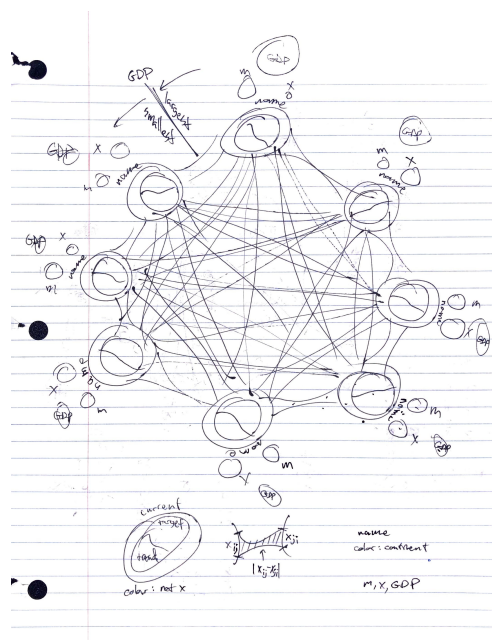 GDP
largest
smallest
GDP
m
x
name
GDP
m
x
name
name
m
x
GDP
name
m
x
GDP
name
m
x
GDP
name
x
m
GDP
GDP
x
m
name
GDP
x
m
name
current
target
trend
color: net x
x ij
x ji
|x ij - x ji|
name
color: continent
m, x, GDP